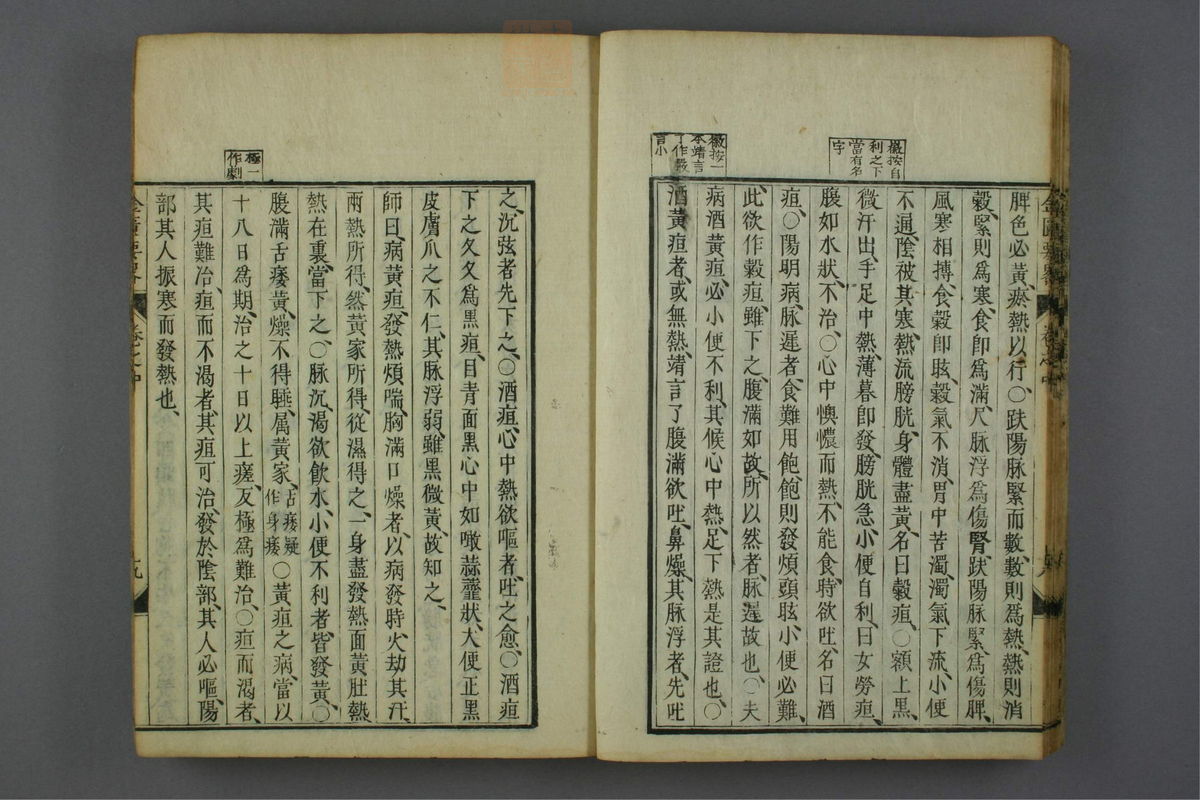 徽按自
利之下
當有名
字
徽按一
本靖言
了作
言小
脾色必黃、瘀熱以行、○趺陽脉緊而數、數則爲熱、熱則消
穀、緊則爲寒、食卽爲滿、尺脉浮爲傷腎、趺陽脉緊、爲傷脾、
風寒相搏、食穀卽眩、穀氣不消、胃中苦濁、濁氣下流、小便
不通、陰被其寒、熱流膀胱、身體盡黃、名曰穀疸、○額上黑、
微汗出、手足中熱、薄暮卽發、膀胱急、小便自利、曰女勞疸、
腹如水狀、不治、○心中懊憹而熱、不能食、時欲吐、名曰酒
疸、○陽明病、脉遲者、食難用飽、飽則發煩頭眩、小便必難、
此欲作穀疸、雖下之、腹滿如故、所以然者、脉遲故也、○夫
病酒黃疸、必小便不利、其候心中熱、足下熱、是其證也、○
酒黃疸者、或無熱、靖言了、腹滿欲吐、鼻燥、其脉浮者、先吐
極一
作劇
之、沉弦者先下之、○酒疸、心中熱欲嘔者、吐之愈、○酒疸
下之、久久爲黑疸、目青面黑、心中如噉蒜虀狀、大便正黑、
皮膚爪之不仁、其脉浮弱、雖黑微黃、故知之、
師曰、病黃疸、發熱煩喘、胸滿口燥者、以病發時、火劫其汗、
兩熱所得、然黃家所得、從濕得之、一身盡發熱面黃、肚熱、
熱在裏、當下之、○脉沉、渴欲飲水、小便不利者、皆發黃、○
腹滿舌痿黃、燥不得睡、属黃家、舌痿疑作身痿○黃疸之病、當以
十八日爲期、治之十日以上瘥、反極爲難治、○疸而渴者、
其疸難治、疸而不渴者、其疸可治、發於陰部、其人必嘔、陽
部其人振寒而發熱也、